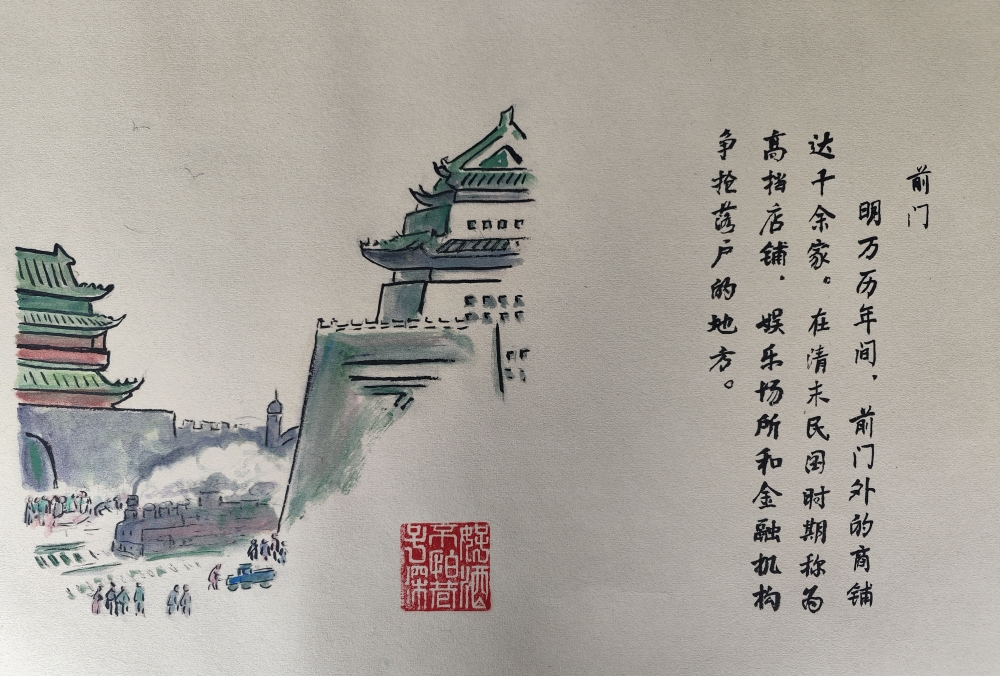 前门
明万历年间，前门外的商铺
达千余家。在清末民国时期称为
高挡店铺、娱乐场所和金融机构
争抢落户的地方。
好酒
不怕巷
子深